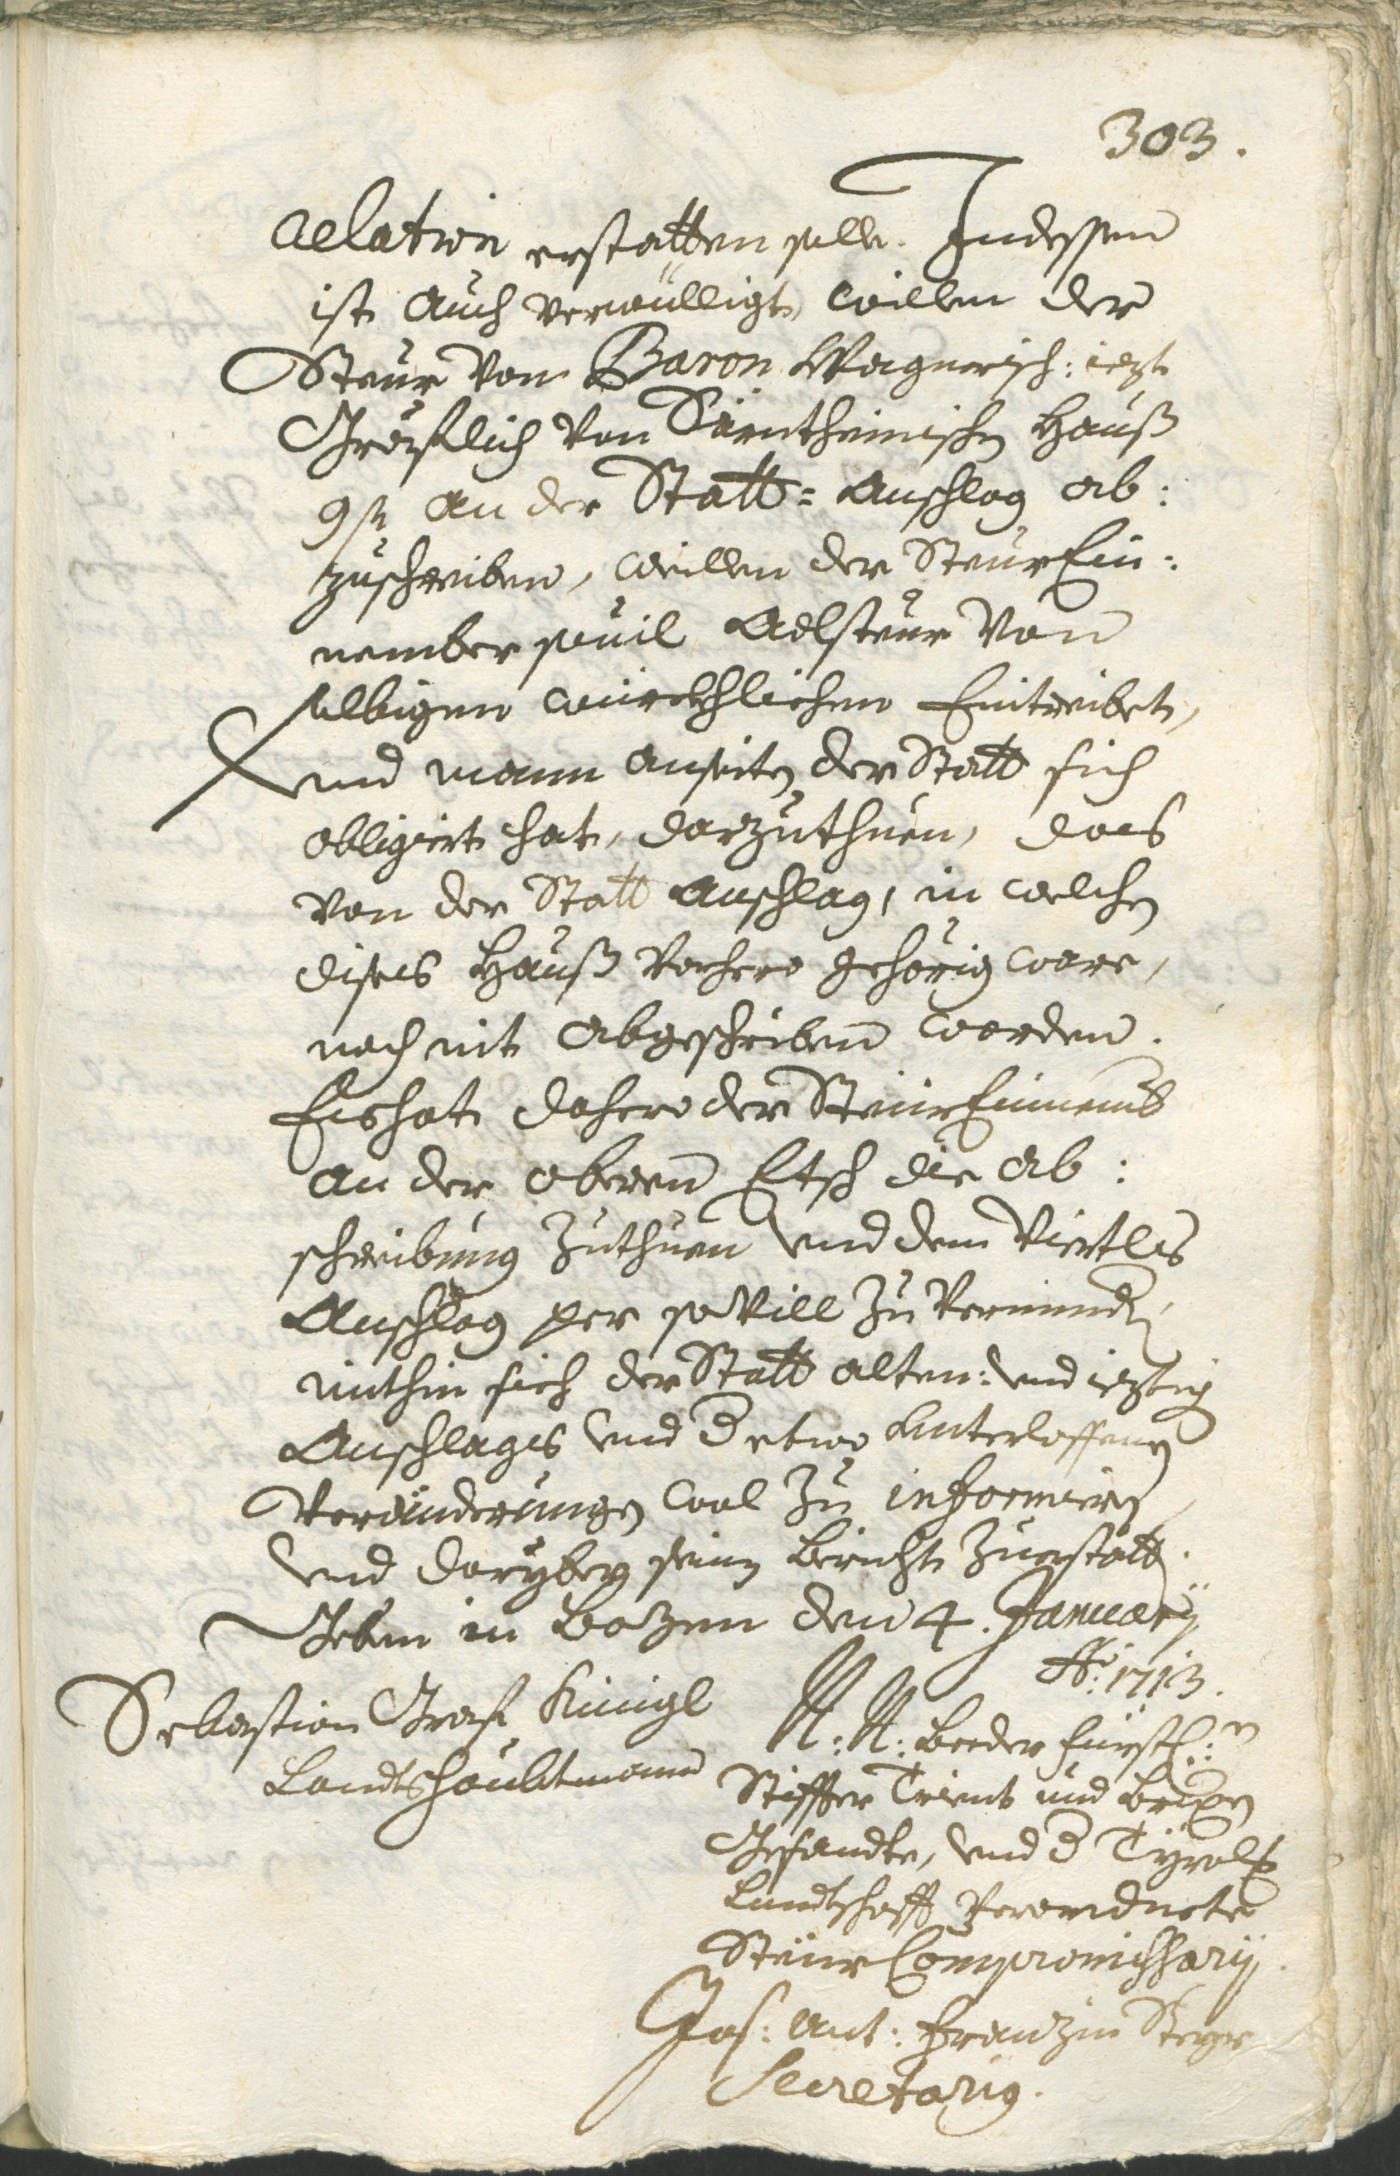 303.
Relation erstatten solle. Indessen
ist auch verwilligt, weillen der
Steur vom Baron Wagnerisch: iezt
Gräflich von Sarntheinischen Hauß
9 kr an der Statt=Anschlag ab:
zuschreiben, weillen der SteurEin:
nember souil Adlsteur von
selbigen würckhlichen Eintreibet,
und mann anseiten der Statt sich
obligiert hat, darzuthuen, das
von der Statt Anschlag, in welchen
dises Hauß vorhero gehörig ware,
noch nit abgeschriben worden.
Es hat dahero der SteurEinnemb
an der oberen Etsch die ab:
schreibung zuthuen und dem Viertls
Anschlag per so vill zu vermindern,
mithin sich der Statt alten: und ieztigen
Anschlages und d etwo unterloffenen
Veränderungen wol zu informiern,
und daryber seinen Bericht zuerstatten.
Geben in Bozen den 4. January
Ao: 1713.
Sebastian Graf Künigl
Landtshaubtmann
N: N: beeder fürstl:n
Stiffter Trient und Brixen
Gesandte, und d Tyrolischen
Landtschafft Verordnete
Steur Compromissary.
Jos: Ant: Franzin
Secretarig.